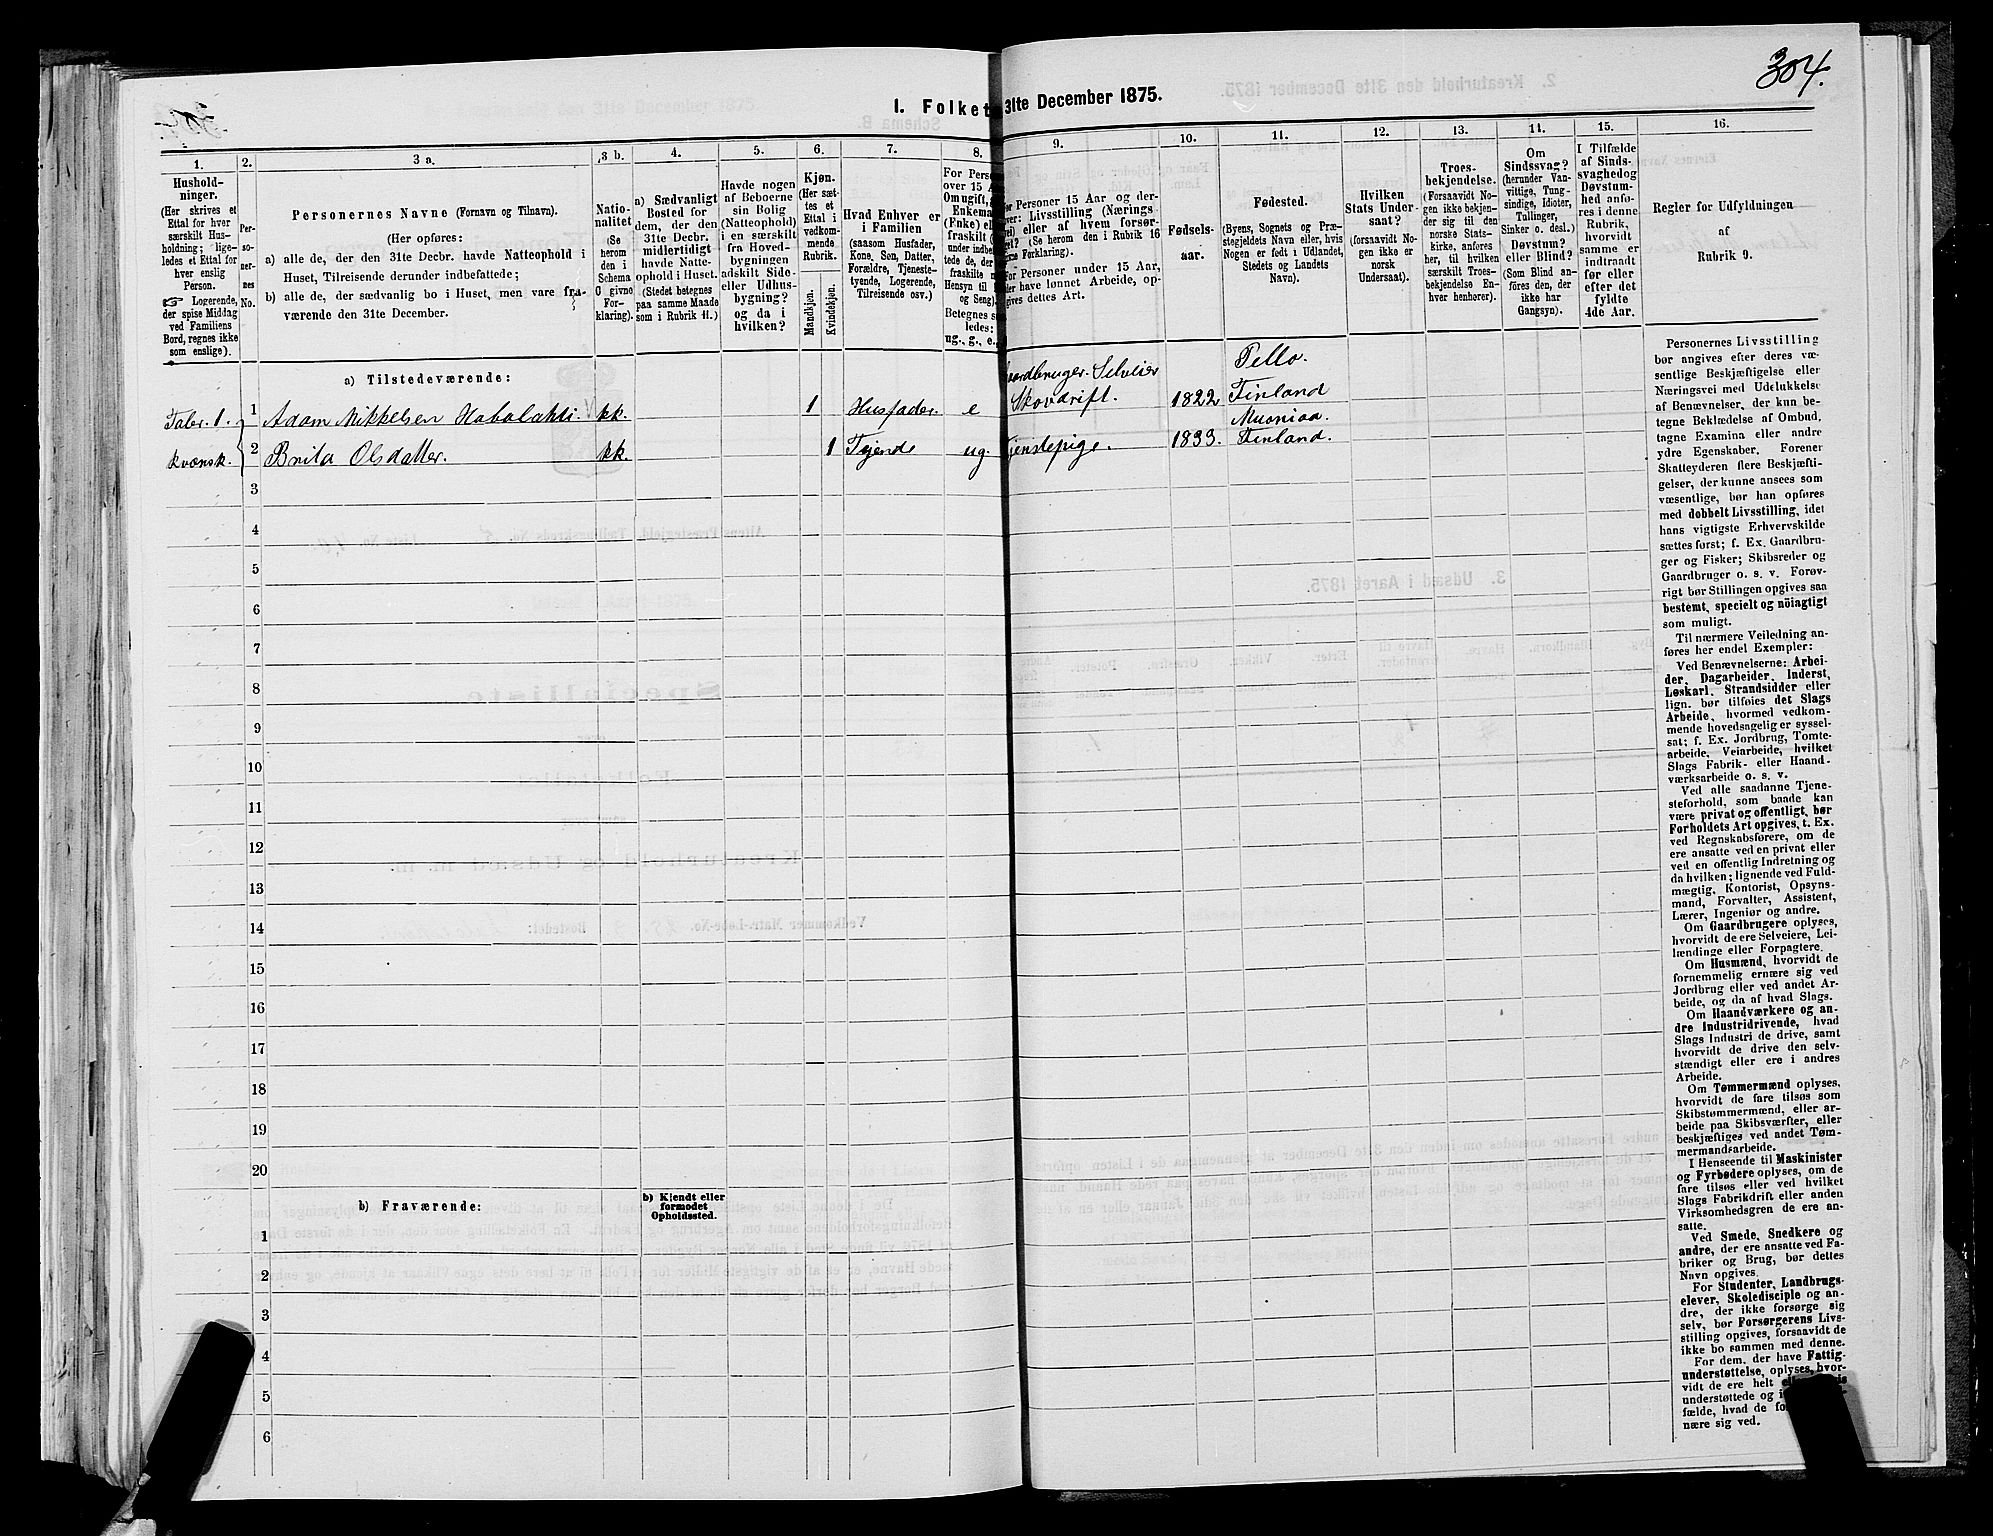 304.
I. Folket
31te December 1875.
1.
2.
3 a.
3 b.
4.
5.
6.
7.
8.
9.
10.
11.
12.
13.
14.
15.
16.
Hushold-
ninger.
(Her skrives et
Ettal for hver
særskilt Hus-
holdning; lige-
ledes et Ettal for
hver enslig
Person.
☞ Logerende,
der spise Middag
ved Familiens
Bord, regnes ikke
som enslige).
Per-
so-
ner-
nes
No.
Personernes Navne (Fornavn og Tilnavn).
(Her opføres:
a) alle de, der den 31te Decbr. havde Natteophold i
Huset, Tilreisende derunder indbefattede;
b) alle de, der sædvanlig bo i Huset, men vare fra-
værende den 31te December.
Natio-
nalitet
(Se
herom
den i
Schema
O givne
For-
klaring).
a) Sædvanligt
Bosted for
dem, der den
31te Decbr.
midlertidigt
havde Natte-
ophold i Huset.
(Stedet betegnes
paa samme Maade
som i Rubrik 11.)
Havde nogen
af Beboerne
sin Bolig
(Natteophold)
i en særskilt
fra Hoved-
bygningen
adskilt Side-
eller Udhus-
bygning?
og da i
hvilken?
Kjøn.
(Her sæt-
tes et
Ettal i
vedkom-
mende
Rubrik.
Mandkjøn.
Kvindekjøn.
Hvad Enhver er
i Familien
(saasom Husfader,
Kone, Søn, Datter,
Forældre, Tjeneste-
tyende, Logerende,
Tilreisende osv.)
For Perso
over 15 A
Om ugift, g
Enkema
(Fnke) el
fraskilt (
under indb
tede de,
fraskilte
Hensyn til
og Seng)
Betegnes s
ledes:
ug., g., e.,
For Personer 15 Aar og der-
over: Livsstilling (Nærings
vei) eller af hvem forsør-
get? (Se herom den i Rubrik 16
givne Førklaring).
For Personer under 15 Aar,
der have lønnet Arbeide, op-
gives dettes Art.
Fødsels-
aar.
Fødested.
(Byens, Sognets og Præ-
stegjeldets Navn eller, hvis
Nogen er født i Udlandet,
Stedets og Landets
Navn).
Hvilken
Stats Under-
saat?
(forsaavidt No-
gen ikke er
norsk
Undersaat).
Troes-
bekjendelse.
(Forsaavidt No-
gen ikke bekjen-
der sig til den
norske Stats-
kirke, anføres
her, til hvilken
særskilt Troes-
bekjendelse En-
hver henhører).
Om
Sindssvag?
(herunder Van-
vittige, Tung-
sindige, Idioter,
Tullinger,
Sinker o. desl.)
Døvstum?
eller Blind?
(Som Blind an-
føres den, der
ikke har
Gangsyn).
I Tilfælde
af Sinds-
svaghed og
Døvstum-
hed anfø-
res i denne
Rubrik,
hvorvidt
samme er
indtraadt
før eller
efter det
fyldte
4de Aar.
Regler for Udfyldningen
af
Rubrik 9.
a) Tilstedeværende:
Taler 1. 1 Adam Mikkelsen Habalahti. kk. 1 Husfader. e Gaardbruger. Selveier Skovdrift. 1822 Pello. Finland
kvænsk. 2 Brita Olsdatter. kk. 1 Tyende ug. Tjenstepige. 1833. Muoniaa. Finland.
3
4
5
6
7
8
9
10
11
12
13
14
15
16
17
18
19
20
b) Fraværende:
b) Kjendt eller
formodet
Opholdssted.
1
2
3
4
5
6
Personernes Livsstilling
bør angives efter deres væ-
sentlige Beskjæftigelse eller
Næringsvei med Udelukkelse
af Benævnelser, der kun be-
tegne Beklædelse af Ombud,
tagne Examina eller andre
ydre Egenskaber. Forener
Skatteyderen flere Beskjæfti-
gelser, der kunne ansees som
væsentlige, bør han opføres
med dobbelt Livsstilling, idet
hans vigtigste Erhvervskilde
sættes først; f. Ex. Gaardbru-
ger og Fisker; Skibsreder og
Gaardbruger o. s. v. Forøv-
rigt bør Stillingen opgives saa
bestemt, specielt og nöiagtigt
som muligt.
Til nærmere Veiledning an-
føres her endel Exempler:
Ved Benævnelserne: Arbei-
der, Dagarbeider, Inderst,
Løskarl, Strandsidder eller
lign. bør tilføies det Slags
Arbeide, hvormed vedkom-
mende hovedsagelig er syssel-
sat; f. Ex. Jordbrug, Tomte-
arbeide, Veiarbeide, hvilket
Slags Fabrik- eller Haand-
værksarbeide o. s. v.
Ved alle saadanne Tjene-
steforhold, som baade kan
være privat og offentligt, bør
Forholdets Art opgives, t. Ex.
ved Regnskabsførere, om de
ere ansatte ved en privat eller
ved en offentlig Indretning og
da hvilken; lignende ved Fuld-
mægtig, Kontorist, Opsyns-
mand, Forvalter, Assistent,
Lærer, Ingeniør og andre.
Om Gaardbrugere oplyses,
hvorvidt de ere Selveiere, Lei-
lændinge eller Forpagtere.
Om Husmænd, hvorvidt de
fornemmelig ernære sig ved
Jordbrug eller ved andet Ar-
beide, og da af hvad Slags.
Om Haandværkere og an-
dre Industridrivende, hvad
Slags Industri de drive, samt
hvorvidt de drive den selv-
stændigt eller ere i andres
Arbeide.
Om Tømmermænd oplyses,
hvorvidt de fare tilsøs som
Skibstømmermænd, eller ar-
beide paa Skibsværfter, eller
beskjæftiges ved andet Tøm-
mermandsarbeide.
I Henseende til Maskinister
og Fyrbødere oplyses, om de
fare tilsøs eller ved hvilket
Slags Fabrikdrift eller anden
Virksomhedsgren de ere an-
satte.
Ved Smede, Snedkere og
andre, der ere ansatte ved Fa-
briker og Brug, bør dettes
Navn opgives.
For Studenter, Landbrugs-
elever, Skoledisciple og an-
dre, der ikke forsørge sig
selv, bør Forsørgerens Livs-
stilling opgives, forsaavidt de
ikke bo sammen med denne.
For dem, der have Fattig-
understøttelse, oplyses, hvor-
vidt de ere helt
understøttede og i
fælde, hvad de
nære sig ved.